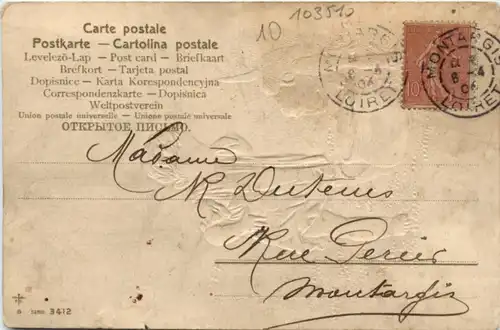 Carte postale
Postkarte — Cartolina postale
Levelező-Lap — Post card — Briefkaart
Brefkort — Tarjeta postal
Dopisnice — Karta Korespondencyjna
Correspondenzkarte — Dopisnica
Weltpostverein
Union postale universelle — Unione postale universale
ОТКРЫТОЕ ПИСЬМО.
10
103510
MONTARGIS
6 -4
04
LOIRET
10
MONTARGIS
6 -4
LOIRET
Madame
Rue
Montargis
3412